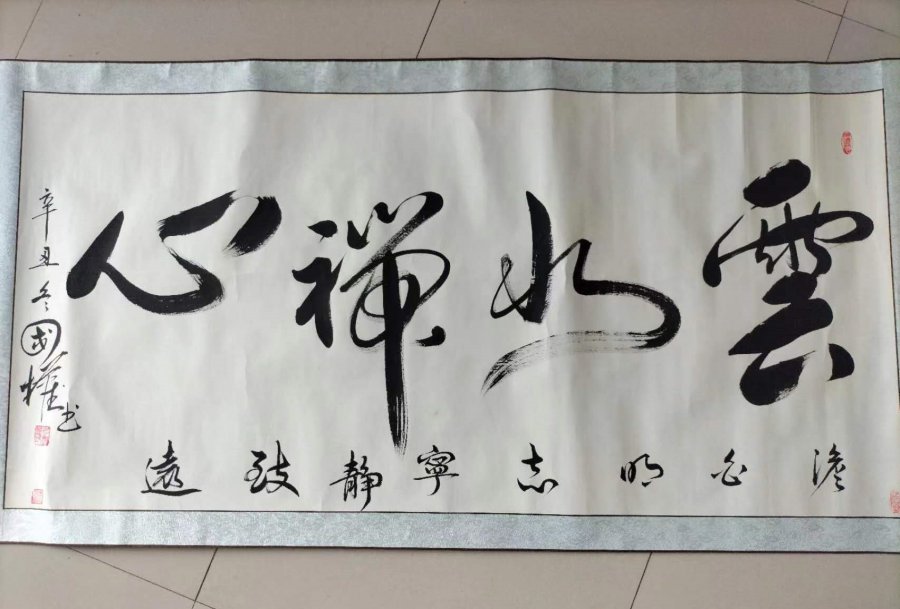 雲水禪心
澹泊明志寧静致遠
辛丑冬國權书